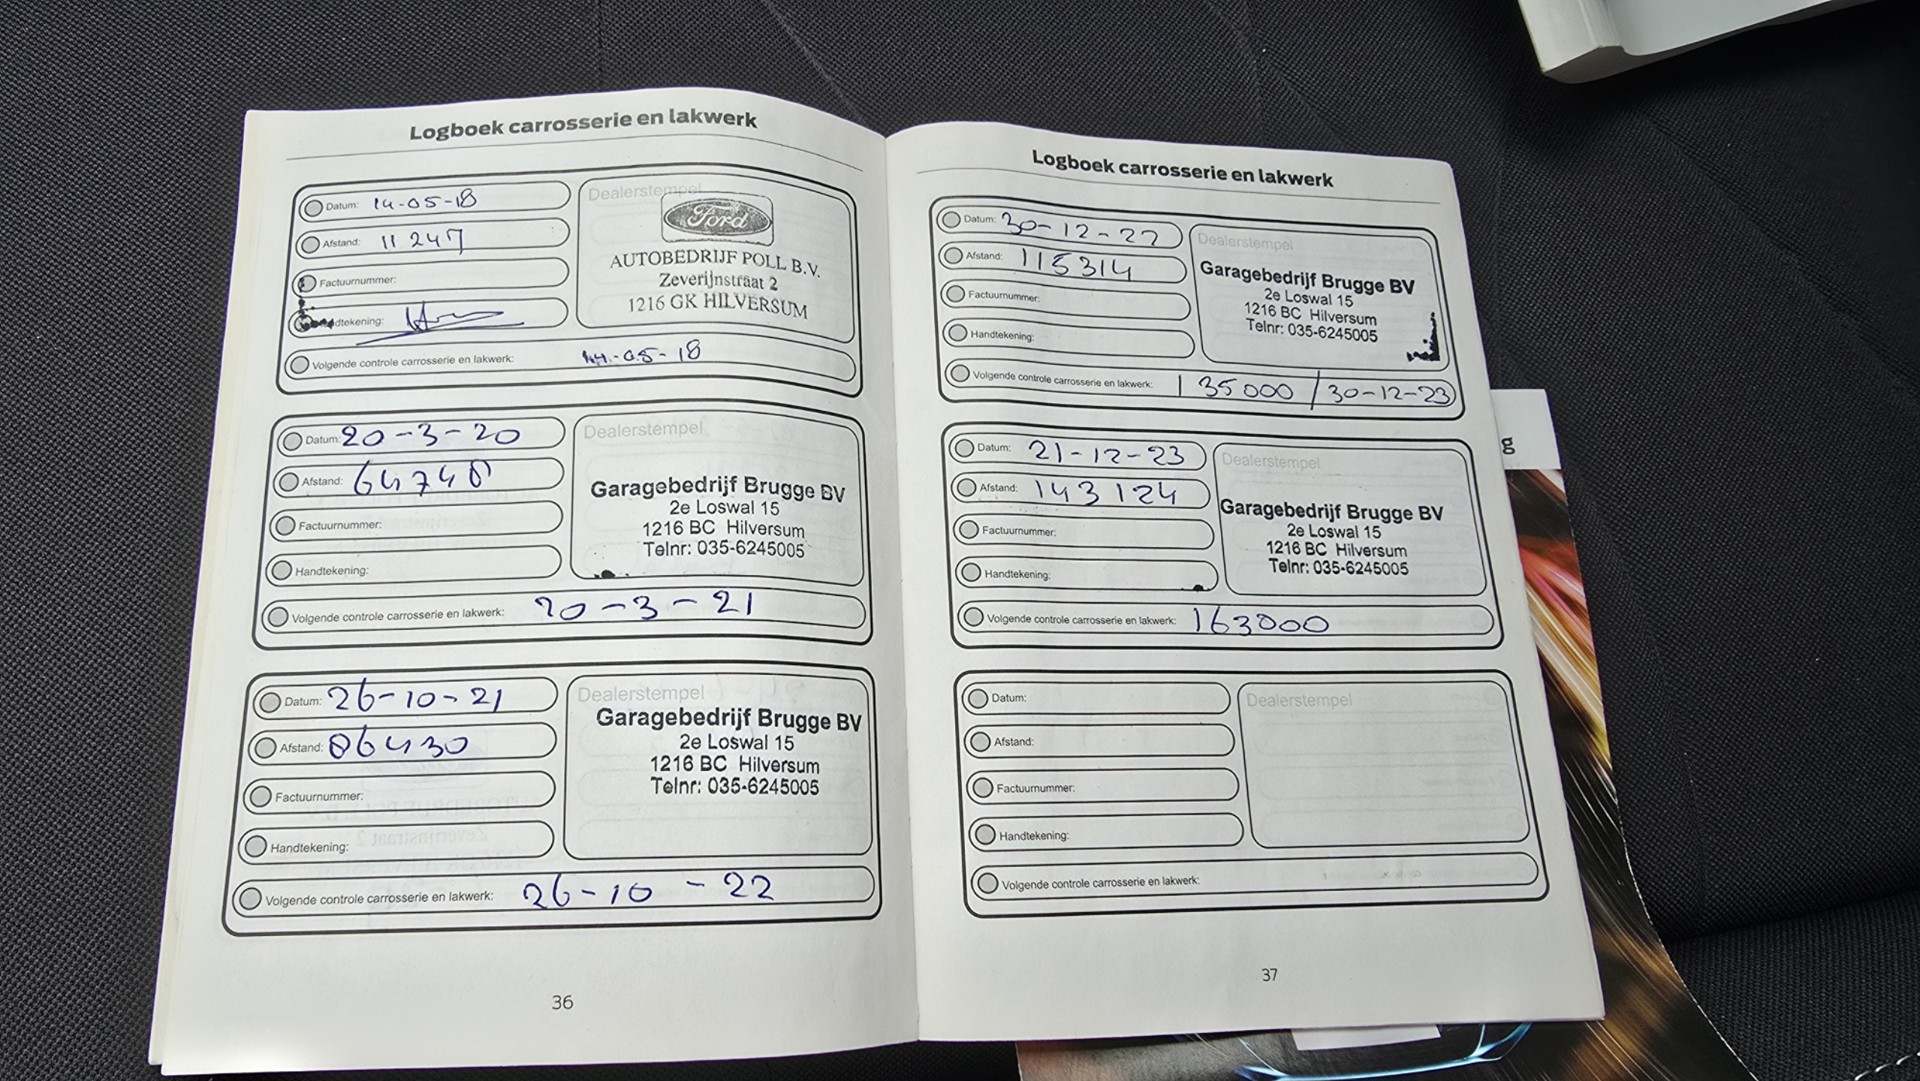 Logboek carrosserie en lakwerk
Datum: 14-05-18
Afstand: 11247
Factuurnummer:
dtekening:
Volgende controle carrosserie en lakwerk: 14-05-18
Dealerstempel
Ford
AUTOBEDRIJF POLL B.V.
Zeverijnstraat 2
1216 GK HILVERSUM
Datum: 20-3-20
Afstand: 64748
Factuurnummer:
Handtekening:
Volgende controle carrosserie en lakwerk: 20-3-21
Dealerstempel
Garagebedrijf Brugge BV
2e Loswal 15
1216 BC Hilversum
Telnr: 035-6245005
Datum: 26-10-21
Afstand: 86430
Factuurnummer:
Handtekening:
Volgende controle carrosserie en lakwerk: 26-10-22
Dealerstempel
Garagebedrijf Brugge BV
2e Loswal 15
1216 BC Hilversum
Telnr: 035-6245005
36
Logboek carrosserie en lakwerk
Datum: 30-12-22
Afstand: 115314
Factuurnummer:
Handtekening:
Volgende controle carrosserie en lakwerk: 135000 / 30-12-23
Dealerstempel
Garagebedrijf Brugge BV
2e Loswal 15
1216 BC Hilversum
Telnr: 035-6245005
Datum: 21-12-23
Afstand: 143124
Factuurnummer:
Handtekening:
Volgende controle carrosserie en lakwerk: 163000
Dealerstempel
Garagebedrijf Brugge BV
2e Loswal 15
1216 BC Hilversum
Telnr: 035-6245005
Datum:
Afstand:
Factuurnummer:
Handtekening:
Volgende controle carrosserie en lakwerk:
Dealerstempel
37
g